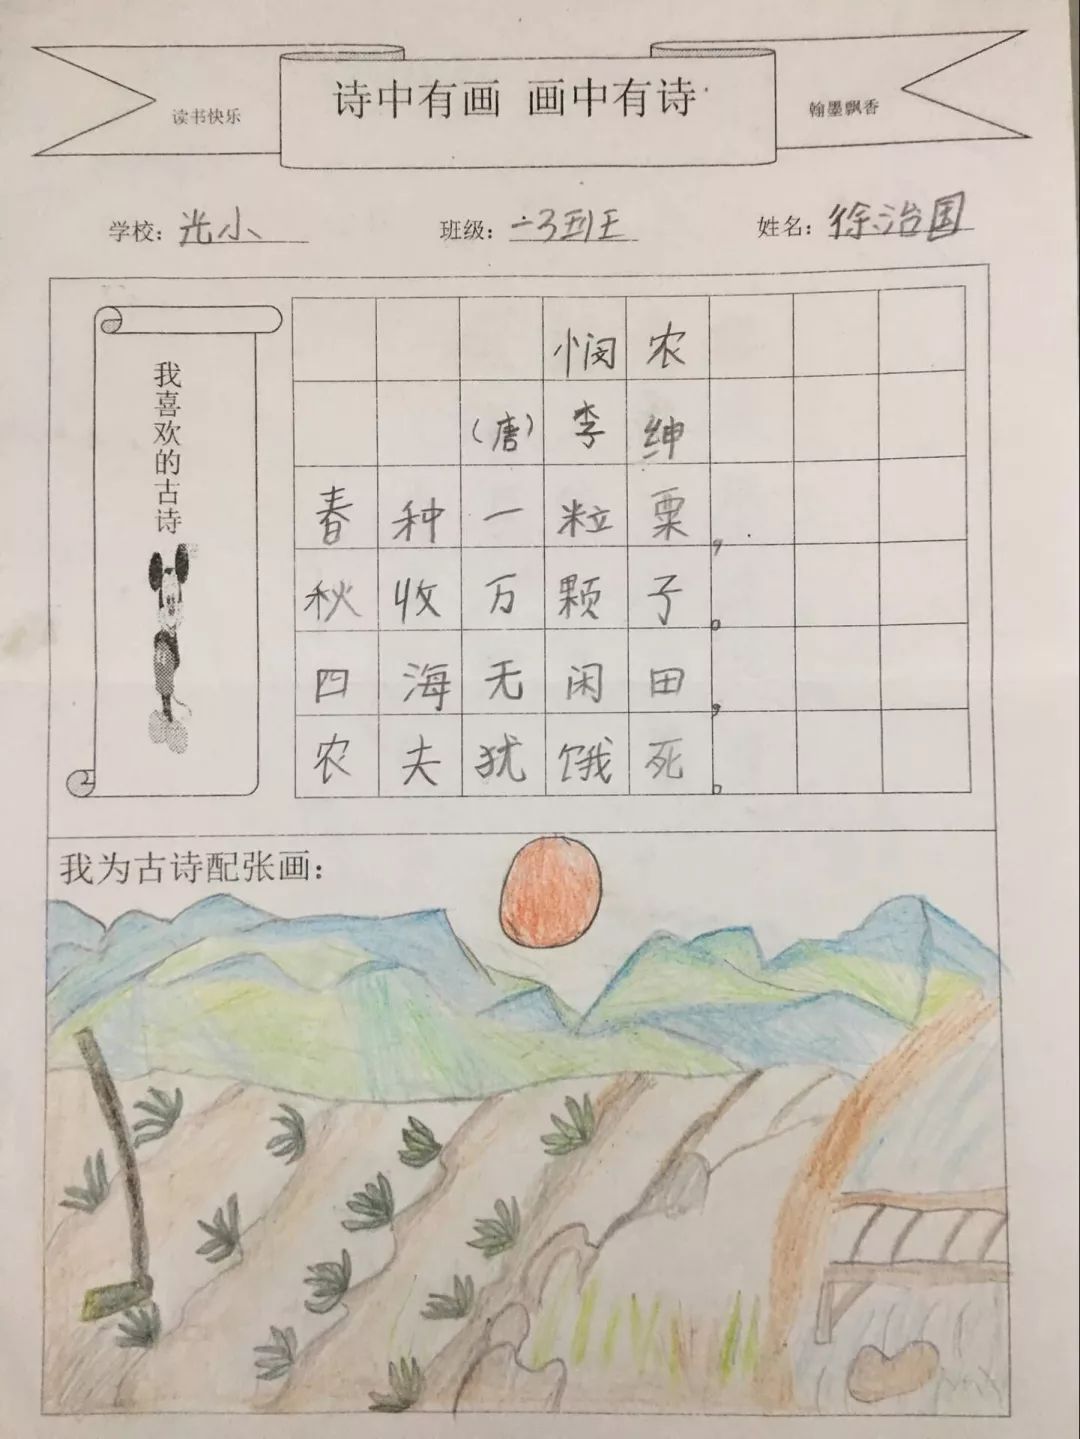 诗中有画 画中有诗
读书快乐
翰墨飘香
学校：光小 班级：一3班 姓名：徐治国
我喜欢的古诗
悯农
（唐）李绅
春种一粒粟，
秋收万颗子。
四海无闲田，
农夫犹饿死。
我为古诗配张画：